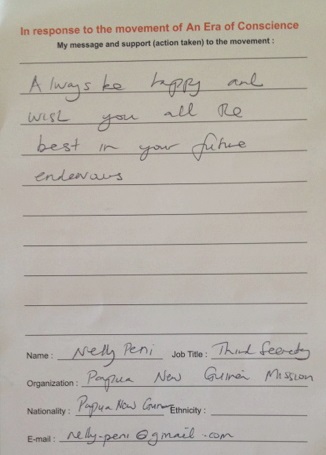 In response to the movement of An Era of Conscience
My message and support (action taken) to the movement :
Always be happy and
wish you all the
best in your future
endevours
Name : Nelly Peni Job Title : Third Secretary
Organization : Papua New Guinea Mission
Nationality : Papua New Guinea Ethnicity :
E-mail : nelly-peni@gmail.com